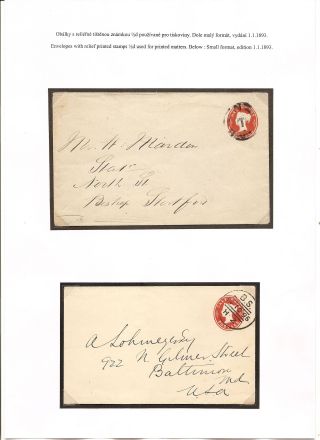 Obálky s reliéfně tištěnou známkou ½d používané pro tiskoviny. Dole malý formát, vydání 1.1.1893.
Envelopes with relief printed stamps ½d used for printed matters. Below : Small format, edition 1.1.1893.
Mr. W. Marden
North St
Bishop Stortford
922 N Gilmor Street
Baltimore
Md.
USA